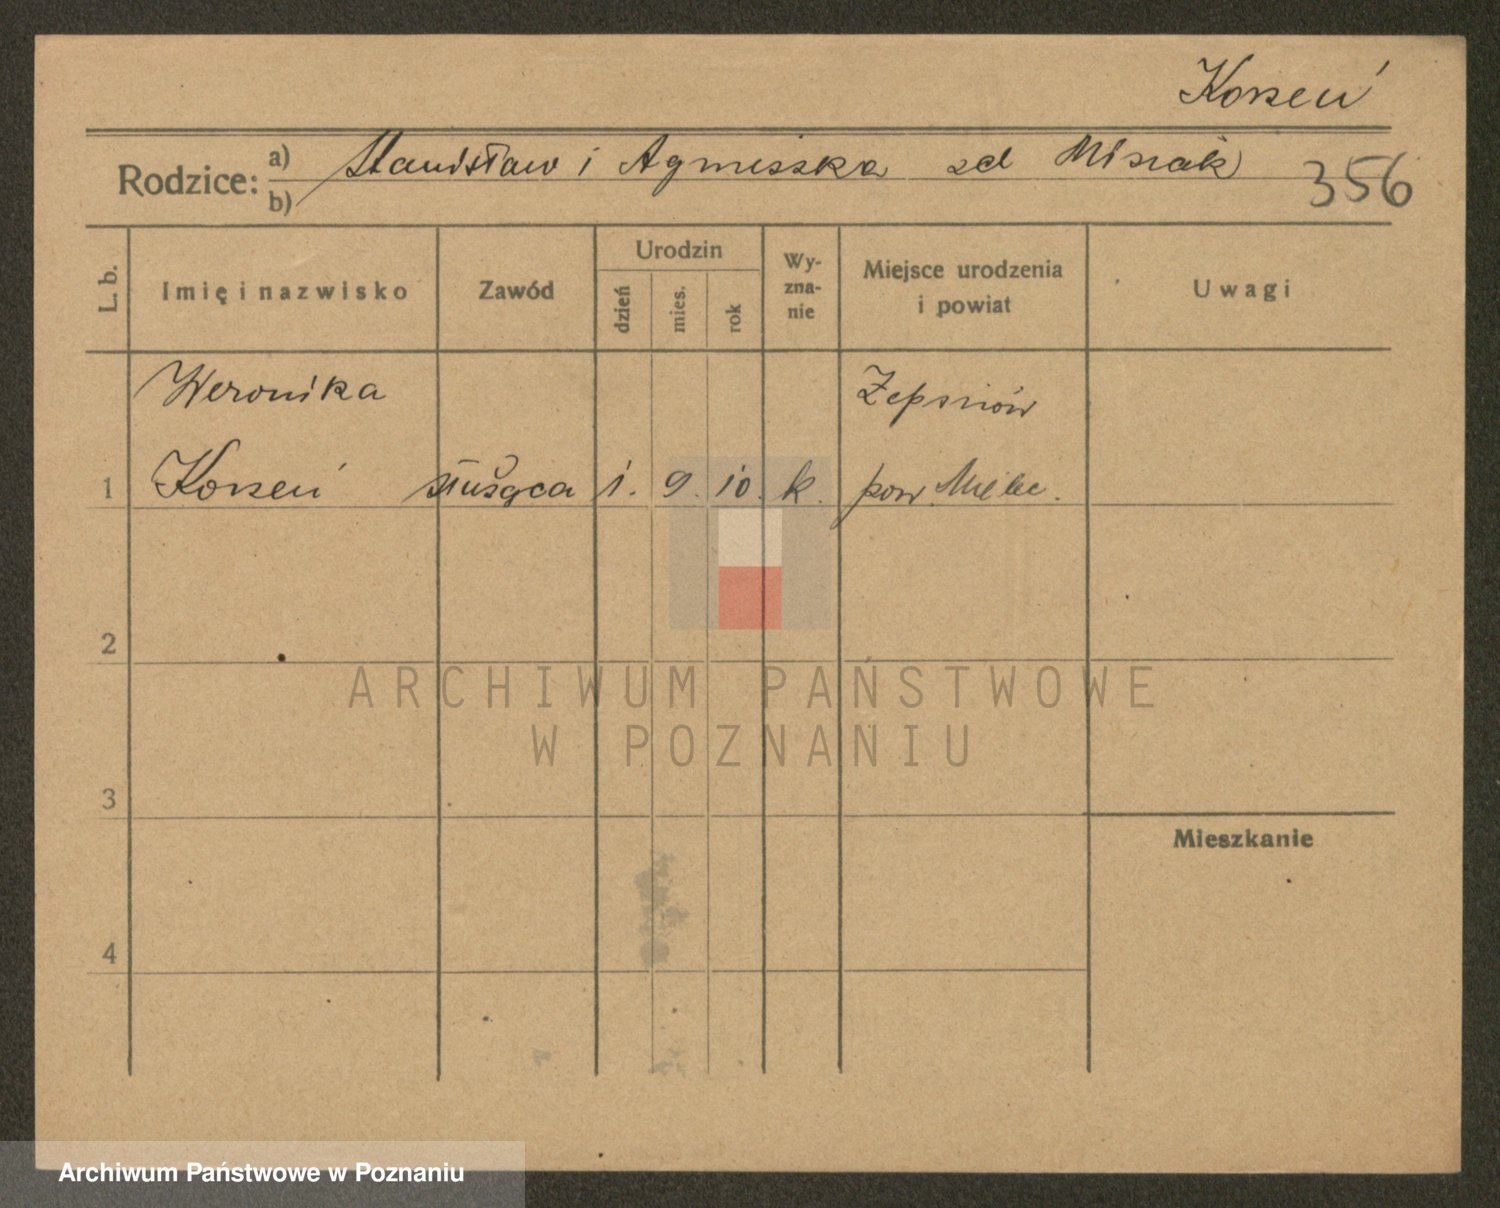 Korzeń
Rodzice: a) b) Stanisław i Agnieszka zd Misiak
356
L. b. Imię i nazwisko Zawód Urodzin dzień mies. rok Wyznanie Miejsce urodzenia i powiat Uwagi
Weronika
1 Korzeń służąca 1. 9. 10. k. pow. Mielec.
2
ARCHIWUM PAŃSTWOWE
W POZNANIU
3
Mieszkanie
4
Archiwum Państwowe w Poznaniu